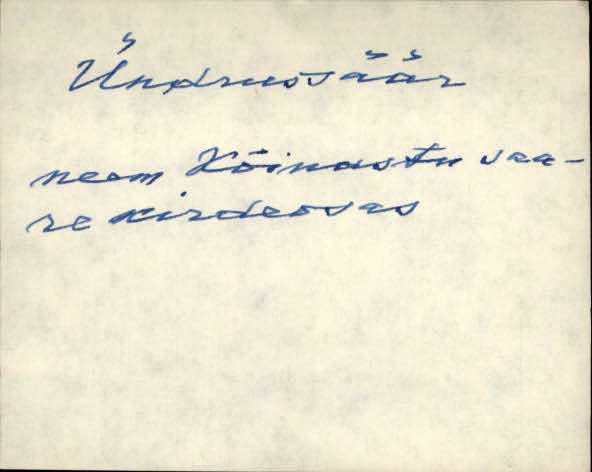 Ündrussäär
neem Kõinastu saa-
re kirdeosas